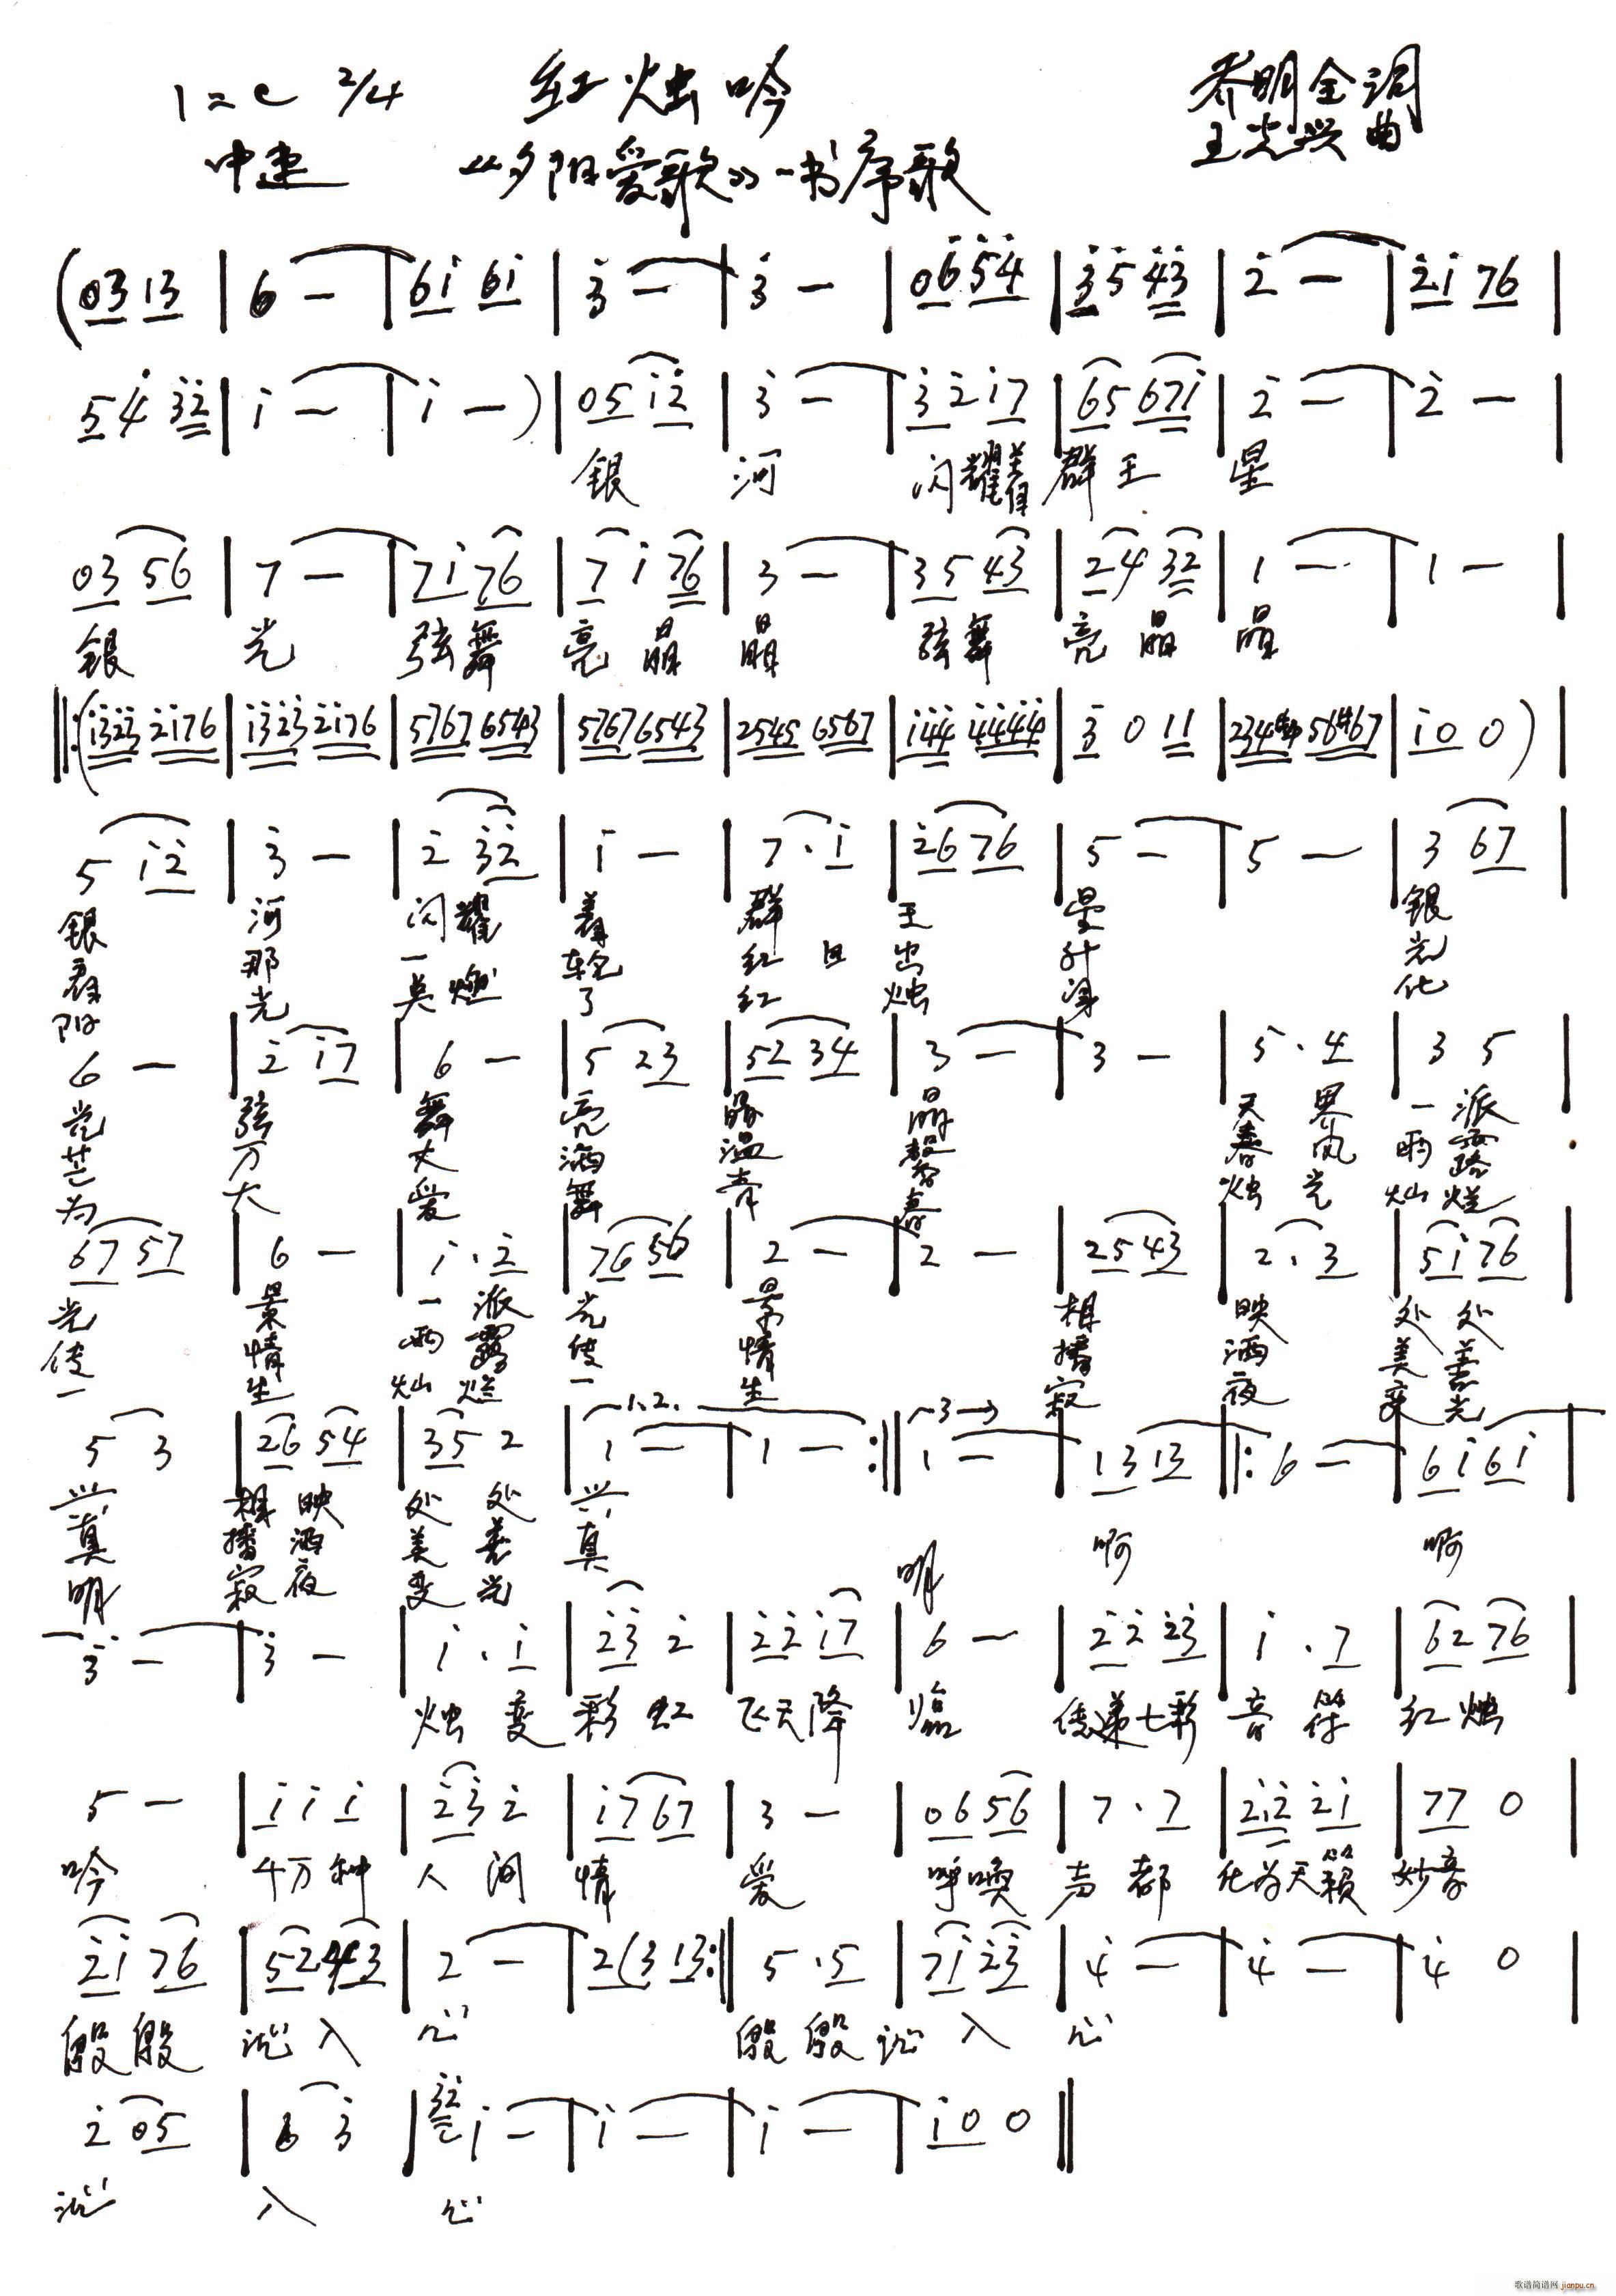 1=C 2/4 红烛吟 乔明全词
中速 《夕阳爱歌》一书序歌 王光兴 曲
(03 13 | 6 — | 61 61 | 3 — | 3 — | 06 54 | 3 5 43 | 2 — | 21 76 |
5 4 32 | 1 — | 1 — ) | 05 12 | 3 — | 32 17 | 65 671 | 2 — | 2 — |
银 河 闪耀着 群王 星
03 56 | 7 — | 71 76 | 7 1 76 | 3 — | 35 43 | 2 4 32 | 1 — | 1 — |
银 光 弦舞 亮 晶 晶 弦舞 亮 晶 晶
‖:(1323 2176 | 1323 2176 | 5767 6543 | 5767 6543 | 2545 6567 | 144 4444 | 3 0 11 | 234#4 56#67 | 10 0 ) |
5 12 | 3 — | 2 32 | 1 — | 7 · 1 | 26 76 | 5 — | 5 — | 3 67 |
银 河 闪耀 着 群 王 星 银
群 那 一 轮 红 日 出 升 光
阳 光 点燃 了 红 烛 身 化
6 — | 2 17 | 6 — | 5 23 | 52 34 | 3 — | 3 — | 5 · 4 | 3 5 |
光 弦 舞 亮 晶 晶 天 界 一 派
芒 万 丈 满 温 馨 春 风 雨 露
为 大 爱 舞 青 春 烛 光 灿 烂
67 57 | 6 — | 1 · 2 | 76 56 | 2 — | 2 — | 25 43 | 2 · 3 | 51 76 |
光 景 一 派 光 景 相 映 处 处
传 情 雨 露 传 情 播 洒 美 善
一 生 灿 烂 一 生 寂 夜 变 光
5 3 | 26 54 | 35 2 | 1.2. 1 — | 1 — :‖ 3 1 — | 13 13 ‖: 6 — | 61 61 |
兴 相 映 处 处 兴
真 播 洒 美 善 真
明 寂 夜 变 光 明 啊 啊
3 — | 3 — | 1 · 1 | 23 2 | 22 17 | 6 — | 22 23 | 1 · 7 | 62 76 |
烛 变 彩 虹 飞天降 临 传递七彩 音 符 红 烛
5 — | 1 1 1 | 23 2 | 17 67 | 3 — | 06 56 | 7 · 7 | 2.2 21 | 77 0 |
吟 千万种 人 间 情 爱 呼唤 声 都 化为天籁 妙音
21 76 | 52 43 | 2 — | 2(3 13:‖ 5 · 5 | 71 23 | 4 — | 4 — | 4 0 |
殷殷 沁入 心 殷 殷 沁 入 心
2 05 | 6 3 | 32 1 — | 1 — | 1 — | 10 0 ‖
沁 入 心
歌谱简谱网 jianpu.cn